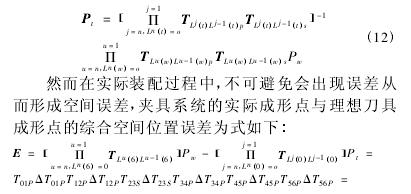 P_t = [ ∏_{j=n, L^n(t)=o}^{j=1} T_{L^j(t)L^{j-1}(t)p} T_{L^j(t)L^{j-1}(t)s} ]^{-1}
(12)
∏_{u=n, L^n(w)=o}^{u=1} T_{L^u(w)L^{u-1}(w)p} T_{L^u(w)L^{u-1}(w)s} P_w
然而在实际装配过程中,不可避免会出现误差从
而形成空间误差,夹具系统的实际成形点与理想刀具
成形点的综合空间位置误差为式如下:
E = [ ∏_{u=n, L^n(6)=0}^{u=1} T_{L^u(6)L^{u-1}(6)} ]P_w - [ ∏_{j=n, L^n(0)=o}^{j=1} T_{L^j(0)L^{j-1}(0)} ]P_t =
T_{01P}ΔT_{01P}T_{12P}ΔT_{12P}T_{23S}ΔT_{23S}T_{34P}ΔT_{34P}T_{45P}ΔT_{45P}T_{56P}ΔT_{56P} =